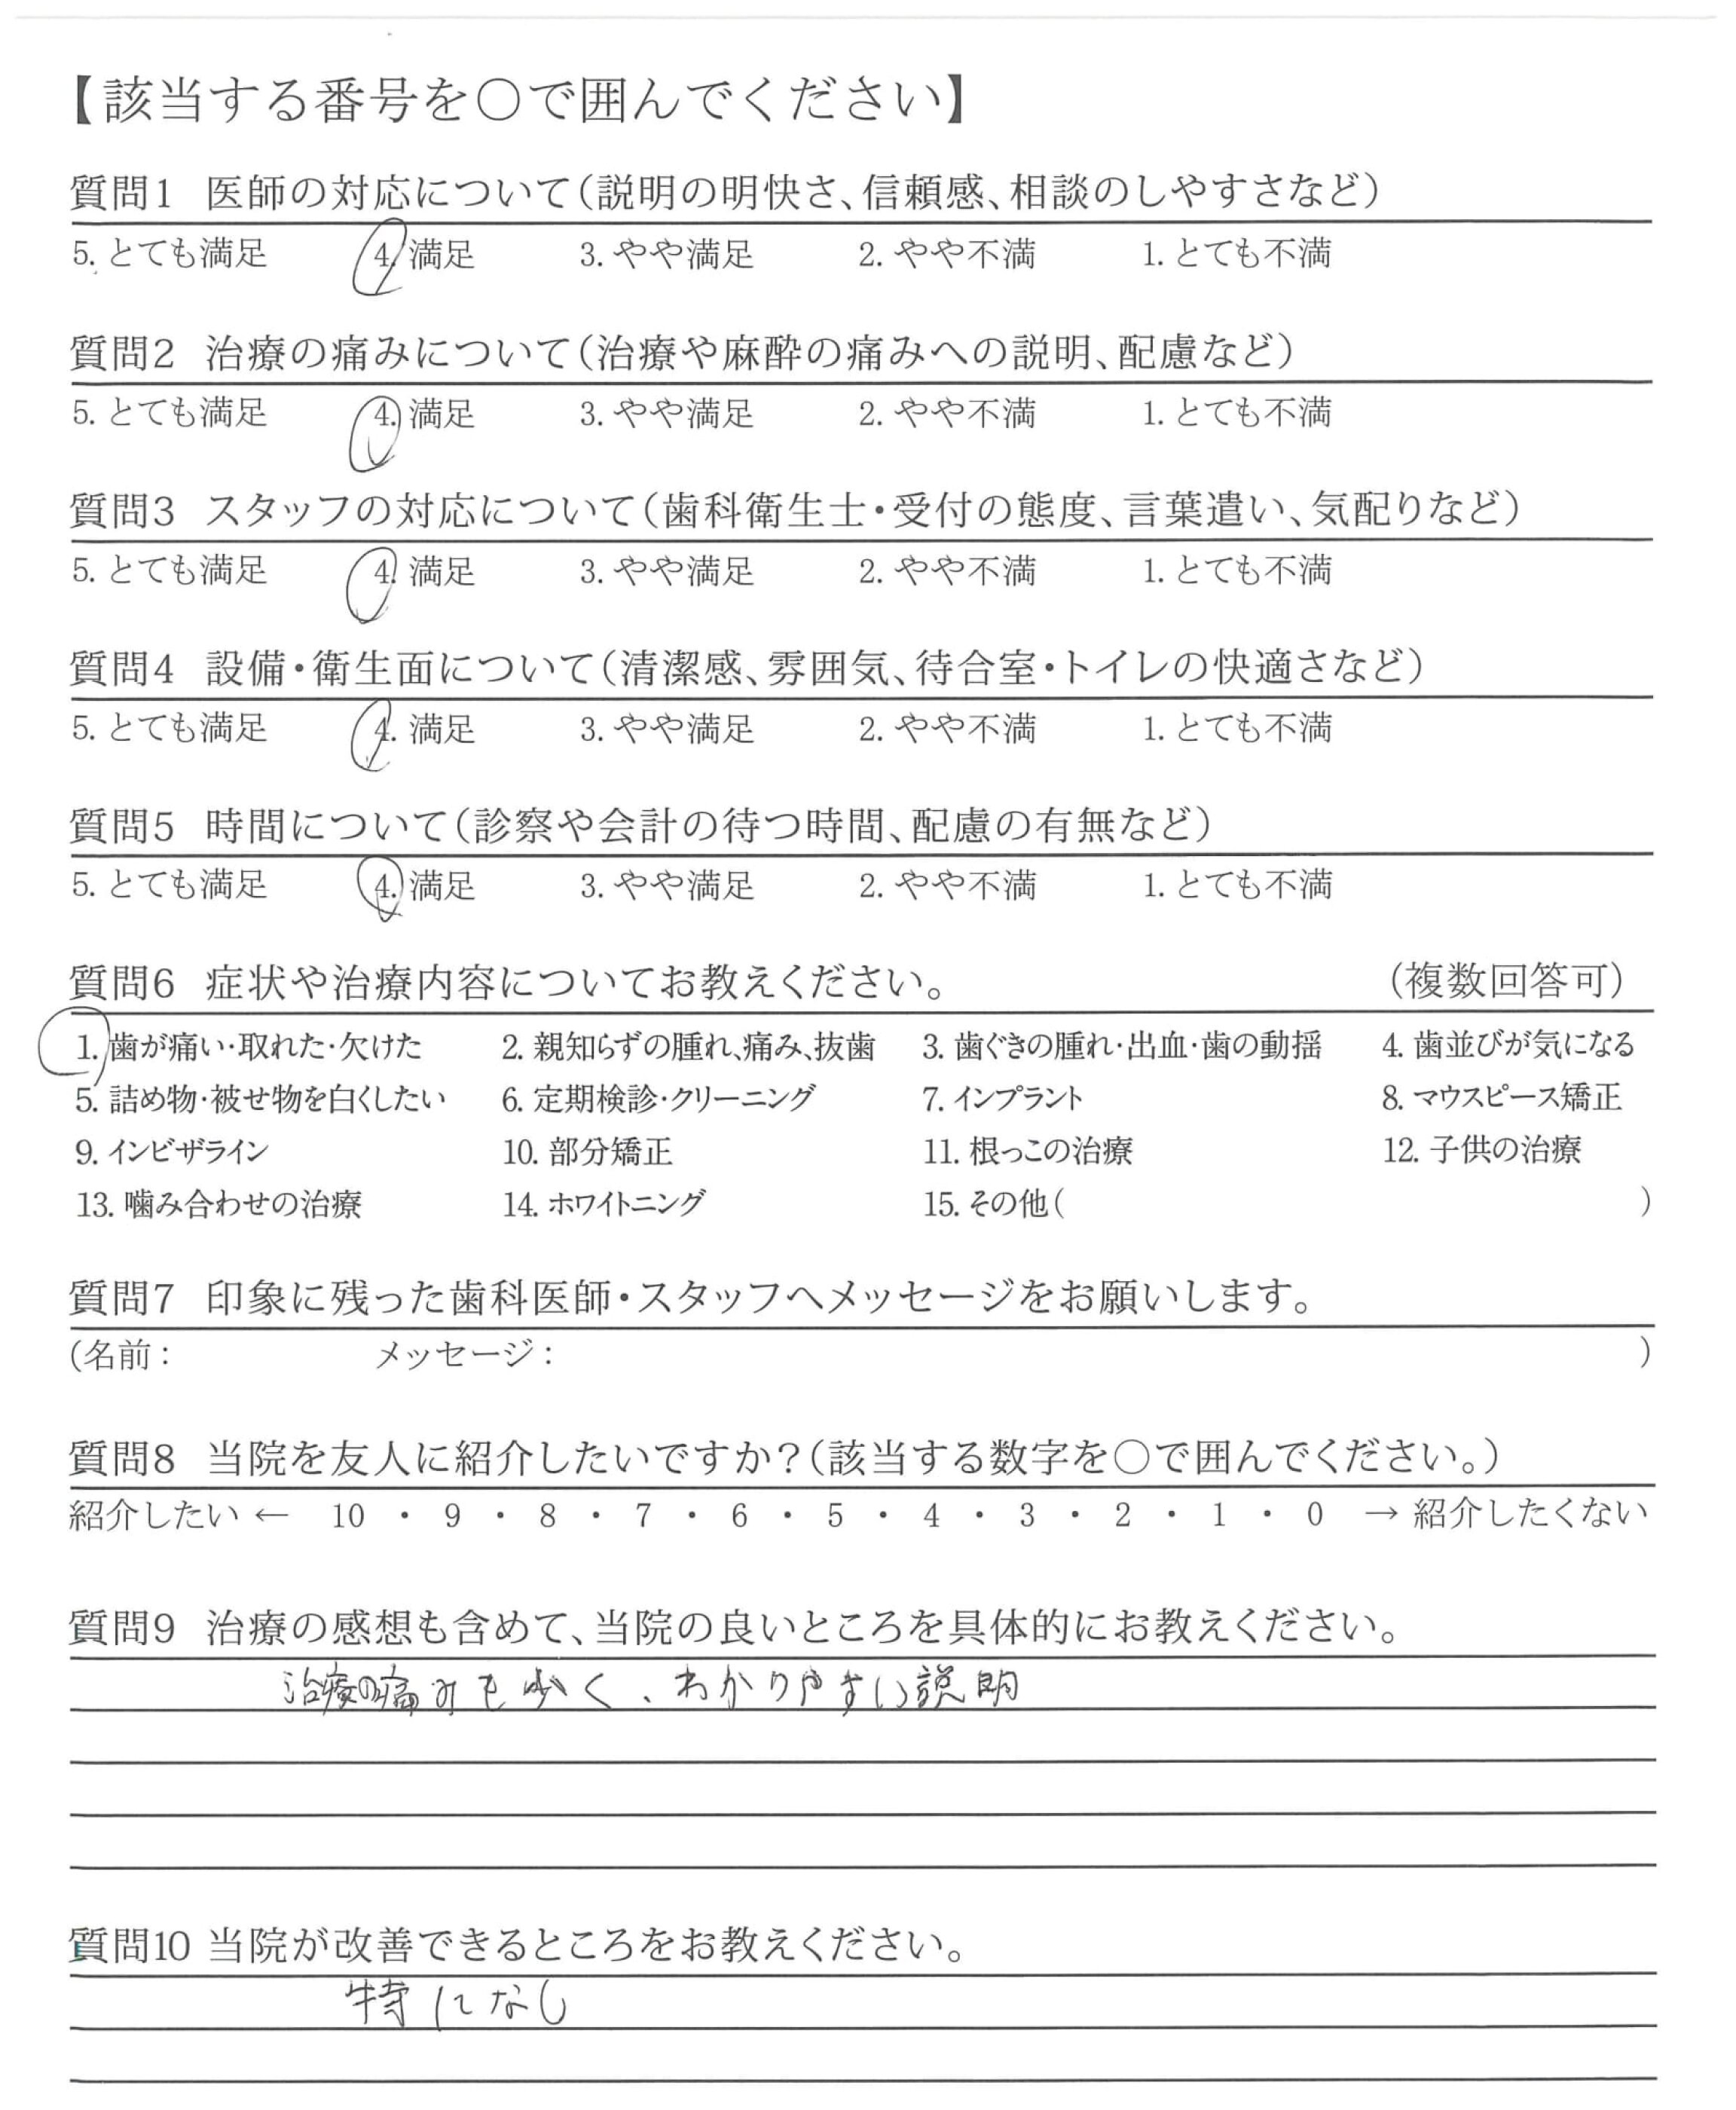 【該当する番号を○で囲んでください】
質問1 医師の対応について(説明の明快さ、信頼感、相談のしやすさなど)
5. とても満足 4. 満足 3. やや満足 2. やや不満 1. とても不満
質問2 治療の痛みについて(治療や麻酔の痛みへの説明、配慮など)
5. とても満足 4. 満足 3. やや満足 2. やや不満 1. とても不満
質問3 スタッフの対応について(歯科衛生士・受付の態度、言葉遣い、気配りなど)
5. とても満足 4. 満足 3. やや満足 2. やや不満 1. とても不満
質問4 設備・衛生面について(清潔感、雰囲気、待合室・トイレの快適さなど)
5. とても満足 4. 満足 3. やや満足 2. やや不満 1. とても不満
質問5 時間について(診察や会計の待つ時間、配慮の有無など)
5. とても満足 4. 満足 3. やや満足 2. やや不満 1. とても不満
質問6 症状や治療内容についてお教えください。 (複数回答可)
1. 歯が痛い・取れた・欠けた 2. 親知らずの腫れ、痛み、抜歯 3. 歯ぐきの腫れ・出血・歯の動揺 4. 歯並びが気になる
5. 詰め物・被せ物を白くしたい 6. 定期検診・クリーニング 7. インプラント 8. マウスピース矯正
9. インビザライン 10. 部分矯正 11. 根っこの治療 12. 子供の治療
13. 噛み合わせの治療 14. ホワイトニング 15. その他( )
質問7 印象に残った歯科医師・スタッフへメッセージをお願いします。
(名前: メッセージ: )
質問8 当院を友人に紹介したいですか?(該当する数字を○で囲んでください。)
紹介したい ← 10 ・ 9 ・ 8 ・ 7 ・ 6 ・ 5 ・ 4 ・ 3 ・ 2 ・ 1 ・ 0 → 紹介したくない
質問9 治療の感想も含めて、当院の良いところを具体的にお教えください。
治療の痛みも少く、わかりやすい説明
質問10 当院が改善できるところをお教えください。
特になし